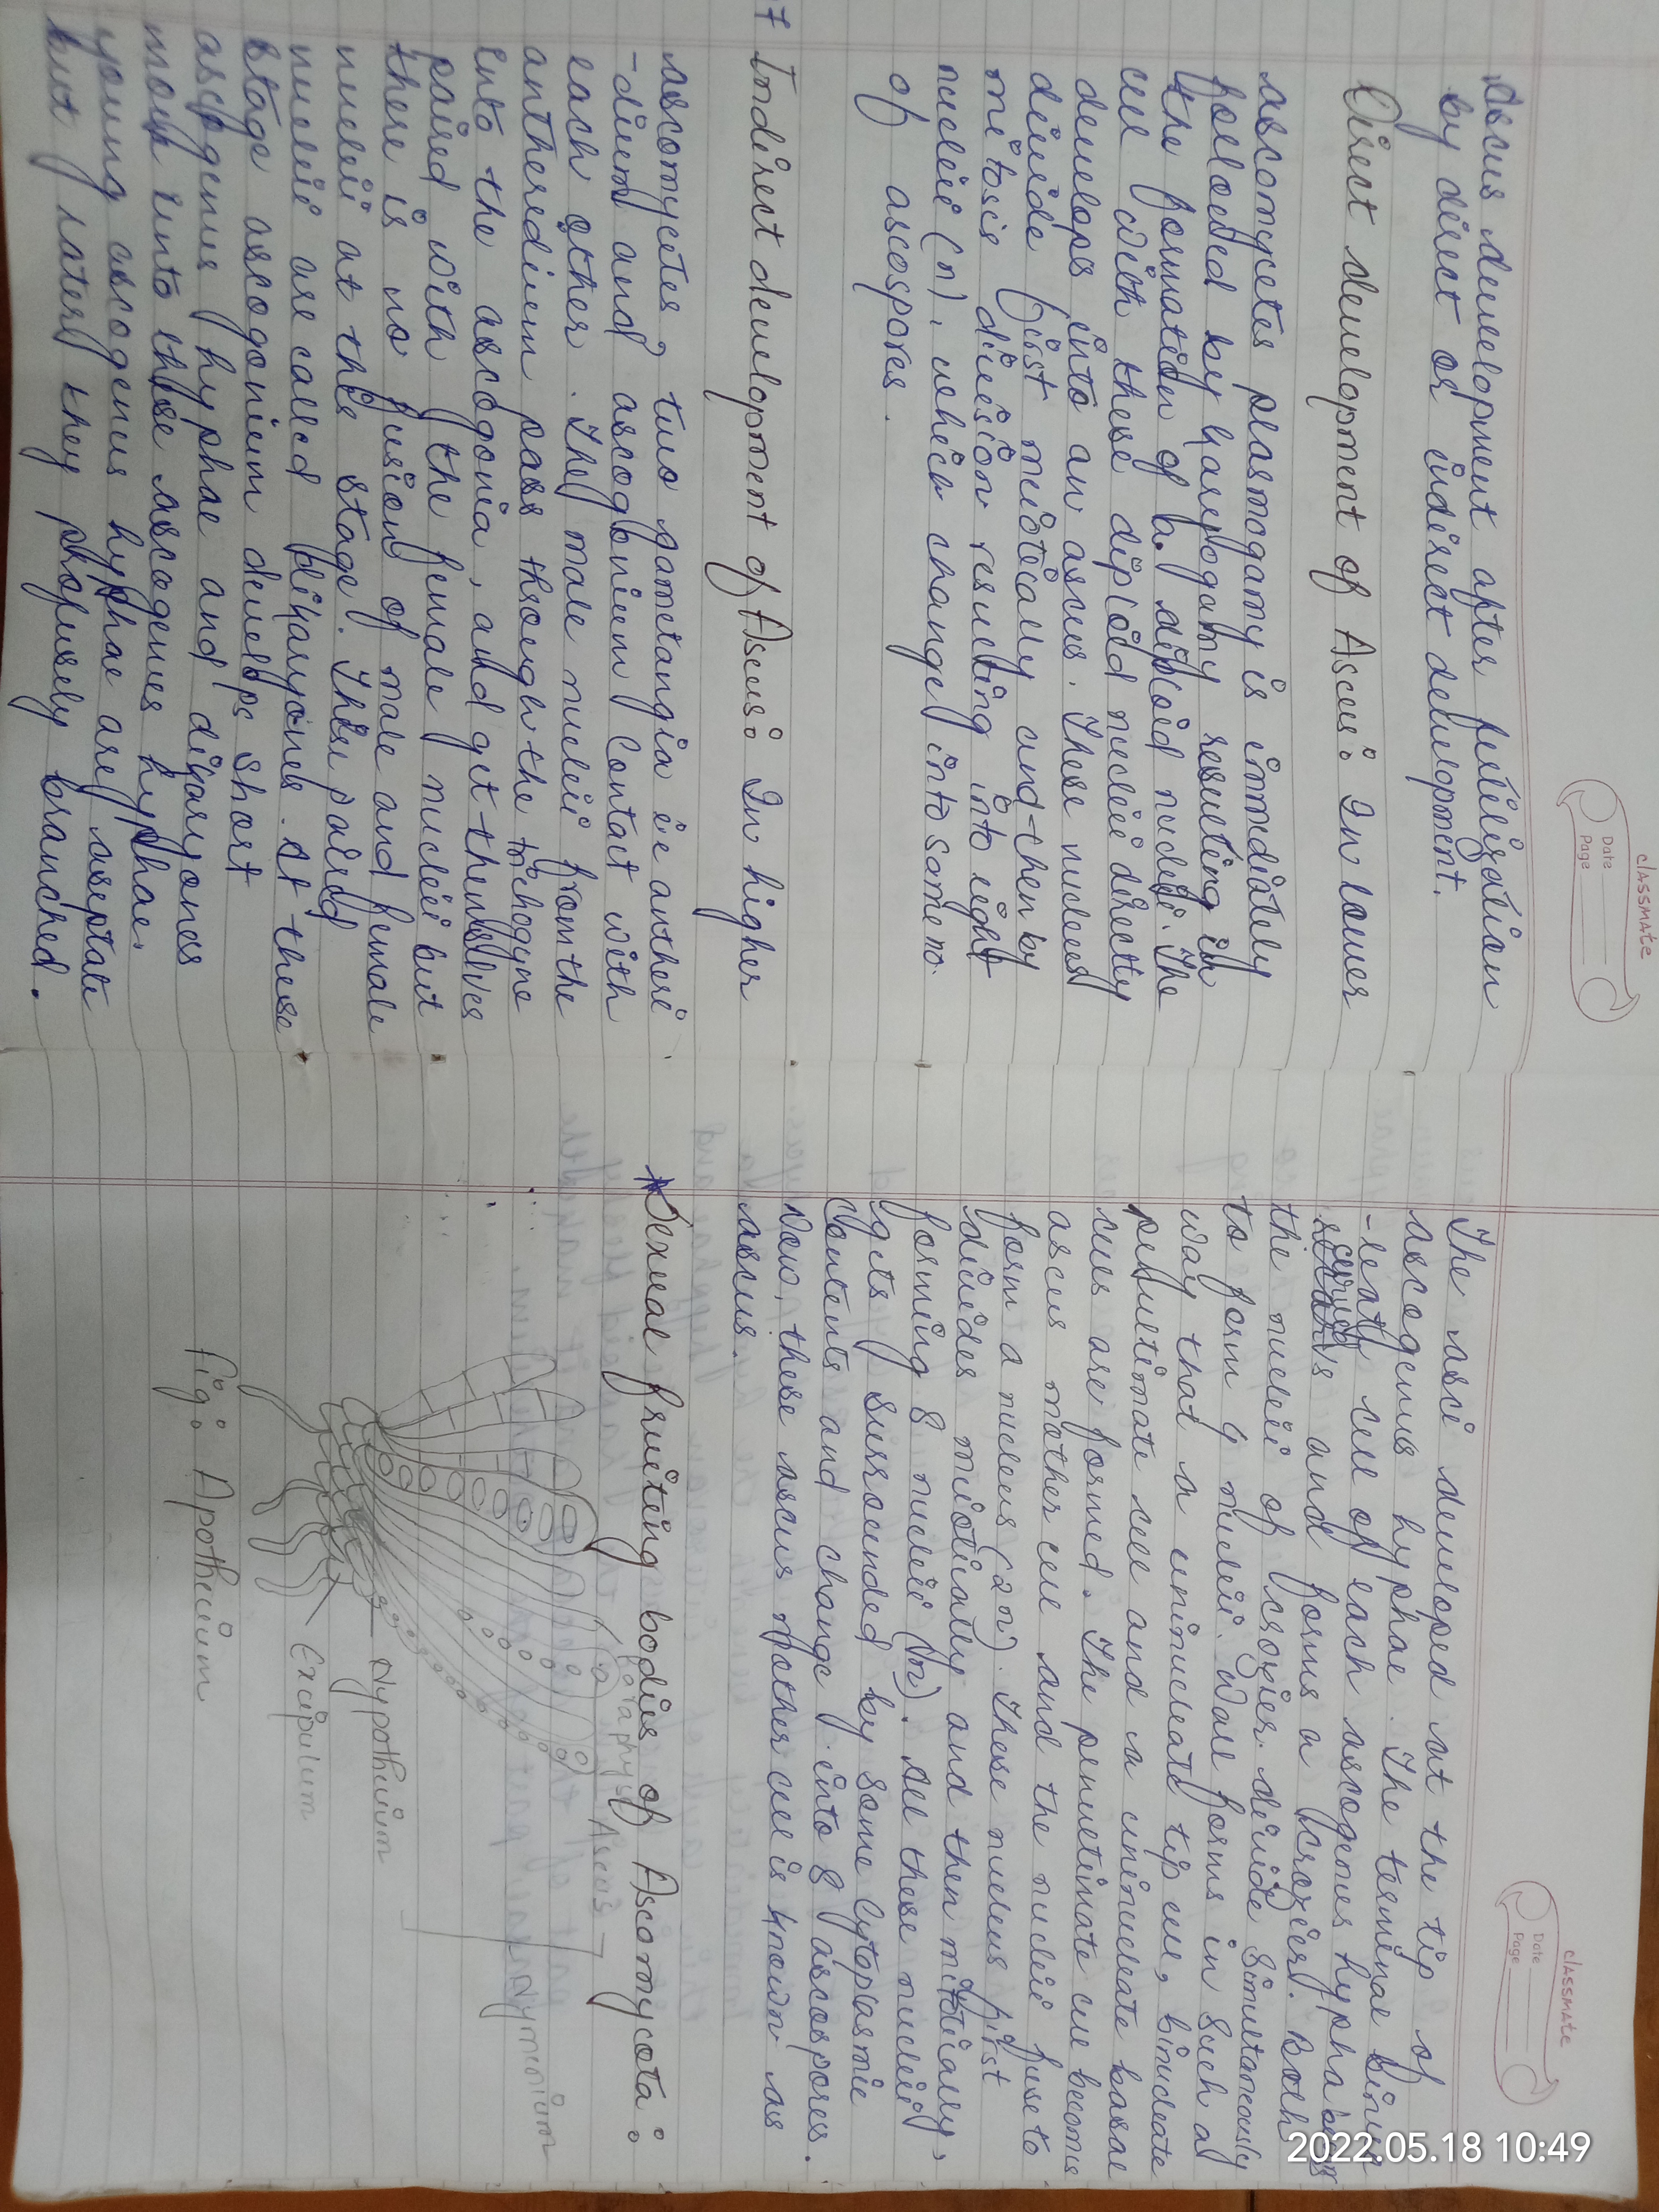 classmate
Date
Page
Ascus development after fertilization
by direct or indirect development.
Direct development of Ascus: In lower
ascomycetes plasmogamy is immediately
followed by karyogamy resulting in
the formation of a diploid nuclei. The
cell with these diploid nucleii directly
develops into an ascus. These nucleus
divide first meiotically and then by
mitosis division resulting into eight
nucleii (n), which change into same no.
of ascospores.
7 Indirect development of Ascus: In higher
ascomycetes, two gametangia i.e antheri
-dium and ascogonium contact with
each other. The male nucleii from the
antheredium pass through the trichogyne
into the ascogonia, and get themselves
paired with the female nucleii but
there is no fusion of male and female
nucleii at this stage. This paired
nucleii are called dikaryones. At these
stage ascogonium develops short
ascogenus hyphae and dikaryones
move into these ascogenus hyphae.
young ascogenus hyphae are aseptate
but later they profusely branched.
classmate
Date
Page
The asci developed at the tip of
ascogenus hyphae. The terminal binuc
-leate cell of each ascogenes hypha
curves and forms a crozier. Both
the nucleii of crozier divide simultaneously
to form 4 nuleii. Wall forms in such a
way that a uninucleate tip cell, binucleate
penultimate cell and a uninucleate basal
cells are formed. The penultimate cell becoms
ascus mother cell and the nucleii fuse to
form a nucleus (2n). These nucleus first
divides miotically and then mitotically,
forming 8 nucleii (n). All these nucleii
gets surrounded by some Cytoplasmic
contents and change into 8 ascospores.
Now, these ascus mother cell is known as
ascus.
*Sexual fruiting bodies of Ascomycota:
Ascus
Hymenium
Hypothecium
Excipulum
fig: Apothecium
2022.05.18 10:49